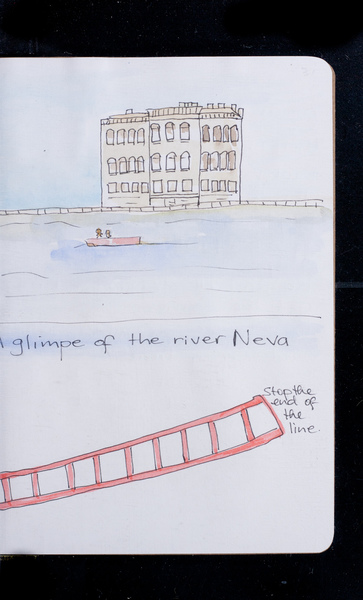 glimpe of the river Neva
Stop the
end of
the
line.